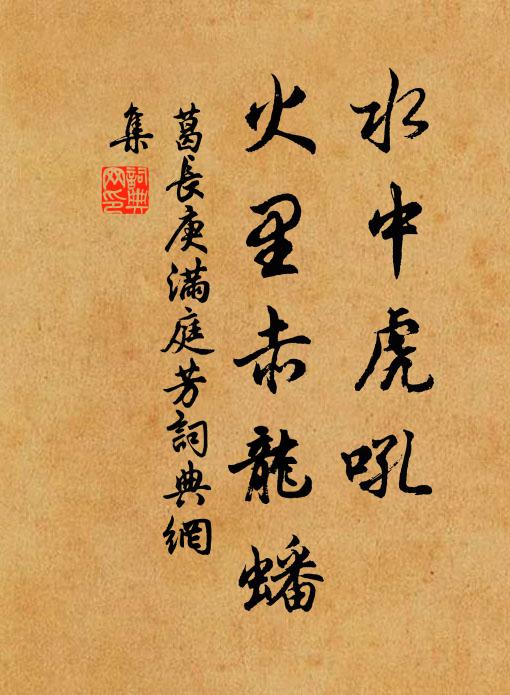 水中虎吼
火里赤龍蟠
葛長庚滿庭芳詞典網
集
詞典網印